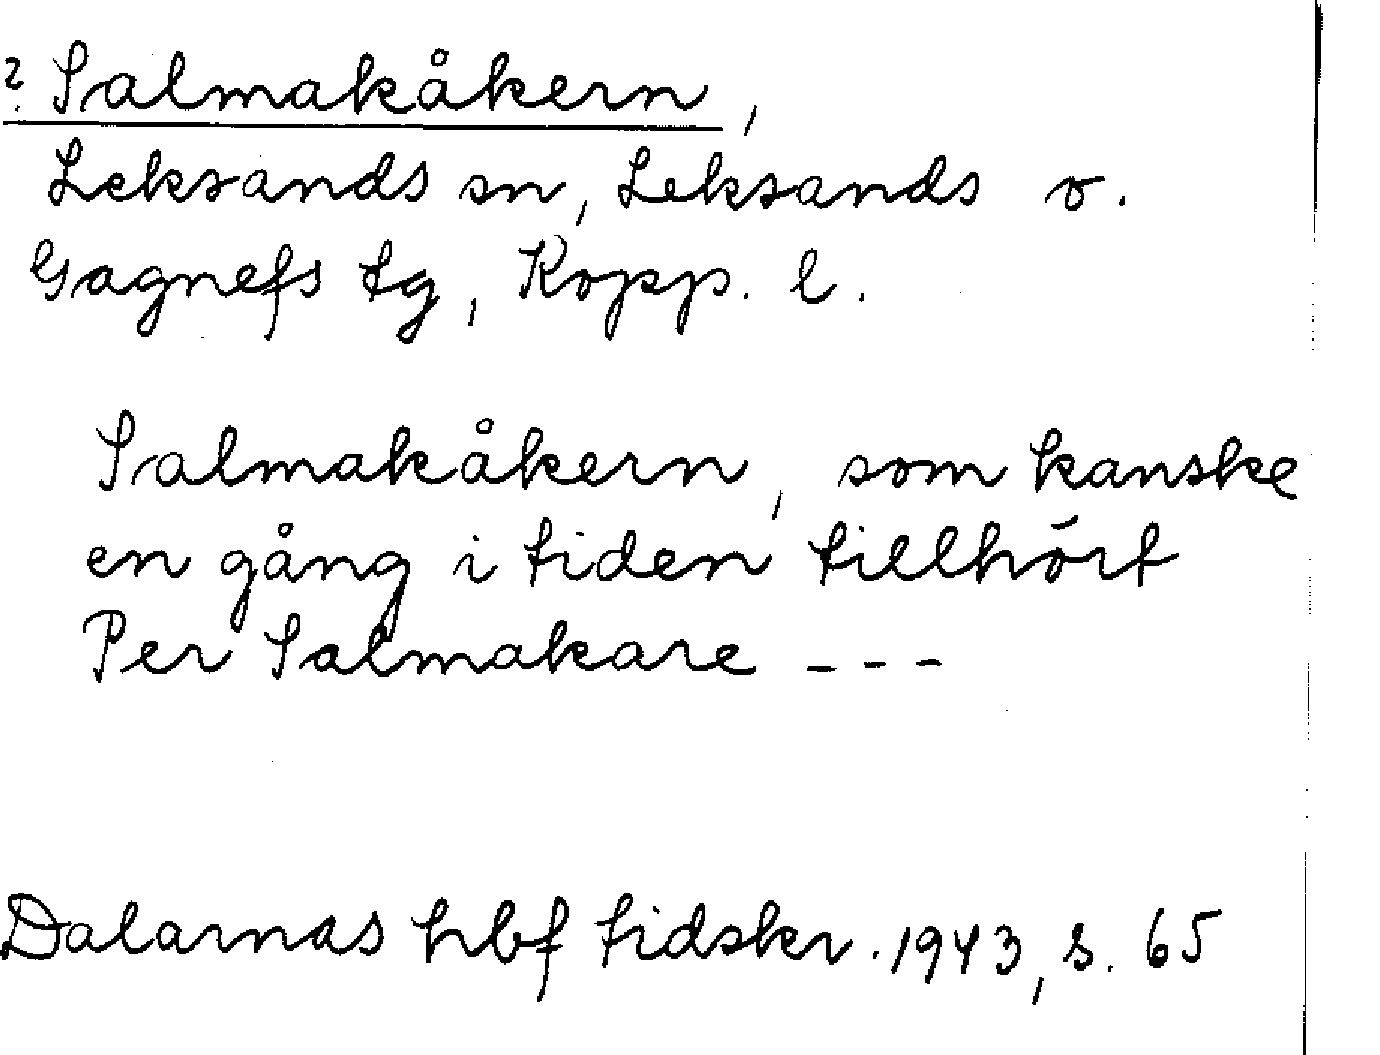 ? Salmakåkern,
Leksands sn, Leksands o.
Gagnefs tg, Kopp. l.
Salmakåkern, som kanske
en gång i tiden tillhört
Per Salmakare - - -
Dalarnas hbf tidskr. 1943, s. 65